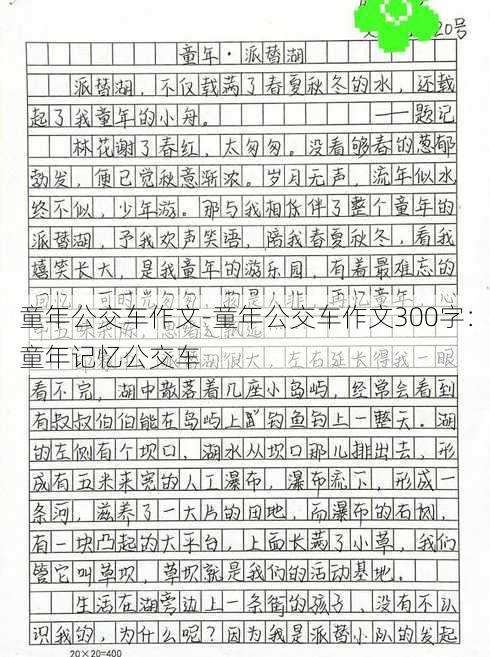 20号
童年·派替湖
派替湖，不仅载满了春夏秋冬的水，还载
起了我童年的小舟。 ——题记
林花谢了春红，太匆匆。没看够春的葱郁
勃发，便已觉秋意渐浓。岁月无声，流年似水
终不似，少年游。那与我相依伴了整个童年的
派替湖，予我欢声笑语，陪我春夏秋冬，看我
嬉笑长大，是我童年的游乐园，有着最难忘的
回忆，
童年公交车作文-童年公交车作文300字：
童年记忆公交车
湖很大，左右延长得我一眼
看不完，湖中散落着几座小岛屿，经常会看到
有叔叔伯伯能在岛屿上钓鱼钓上一整天。湖
的左侧有个坝口，湖水从坝口那儿排出去，形
成有五米来宽的人工瀑布，瀑布流下，形成一
条河，滋养了一大片的田地，而瀑布的右侧，
有一块凸起的大平台，上面长满了小草，我们
管它叫草坝，草坝就是我们的活动基地。
生活在湖旁边上一条街的孩子，没有不认
识我的，为什么呢？因为我是派替小队的发起
20×20=400